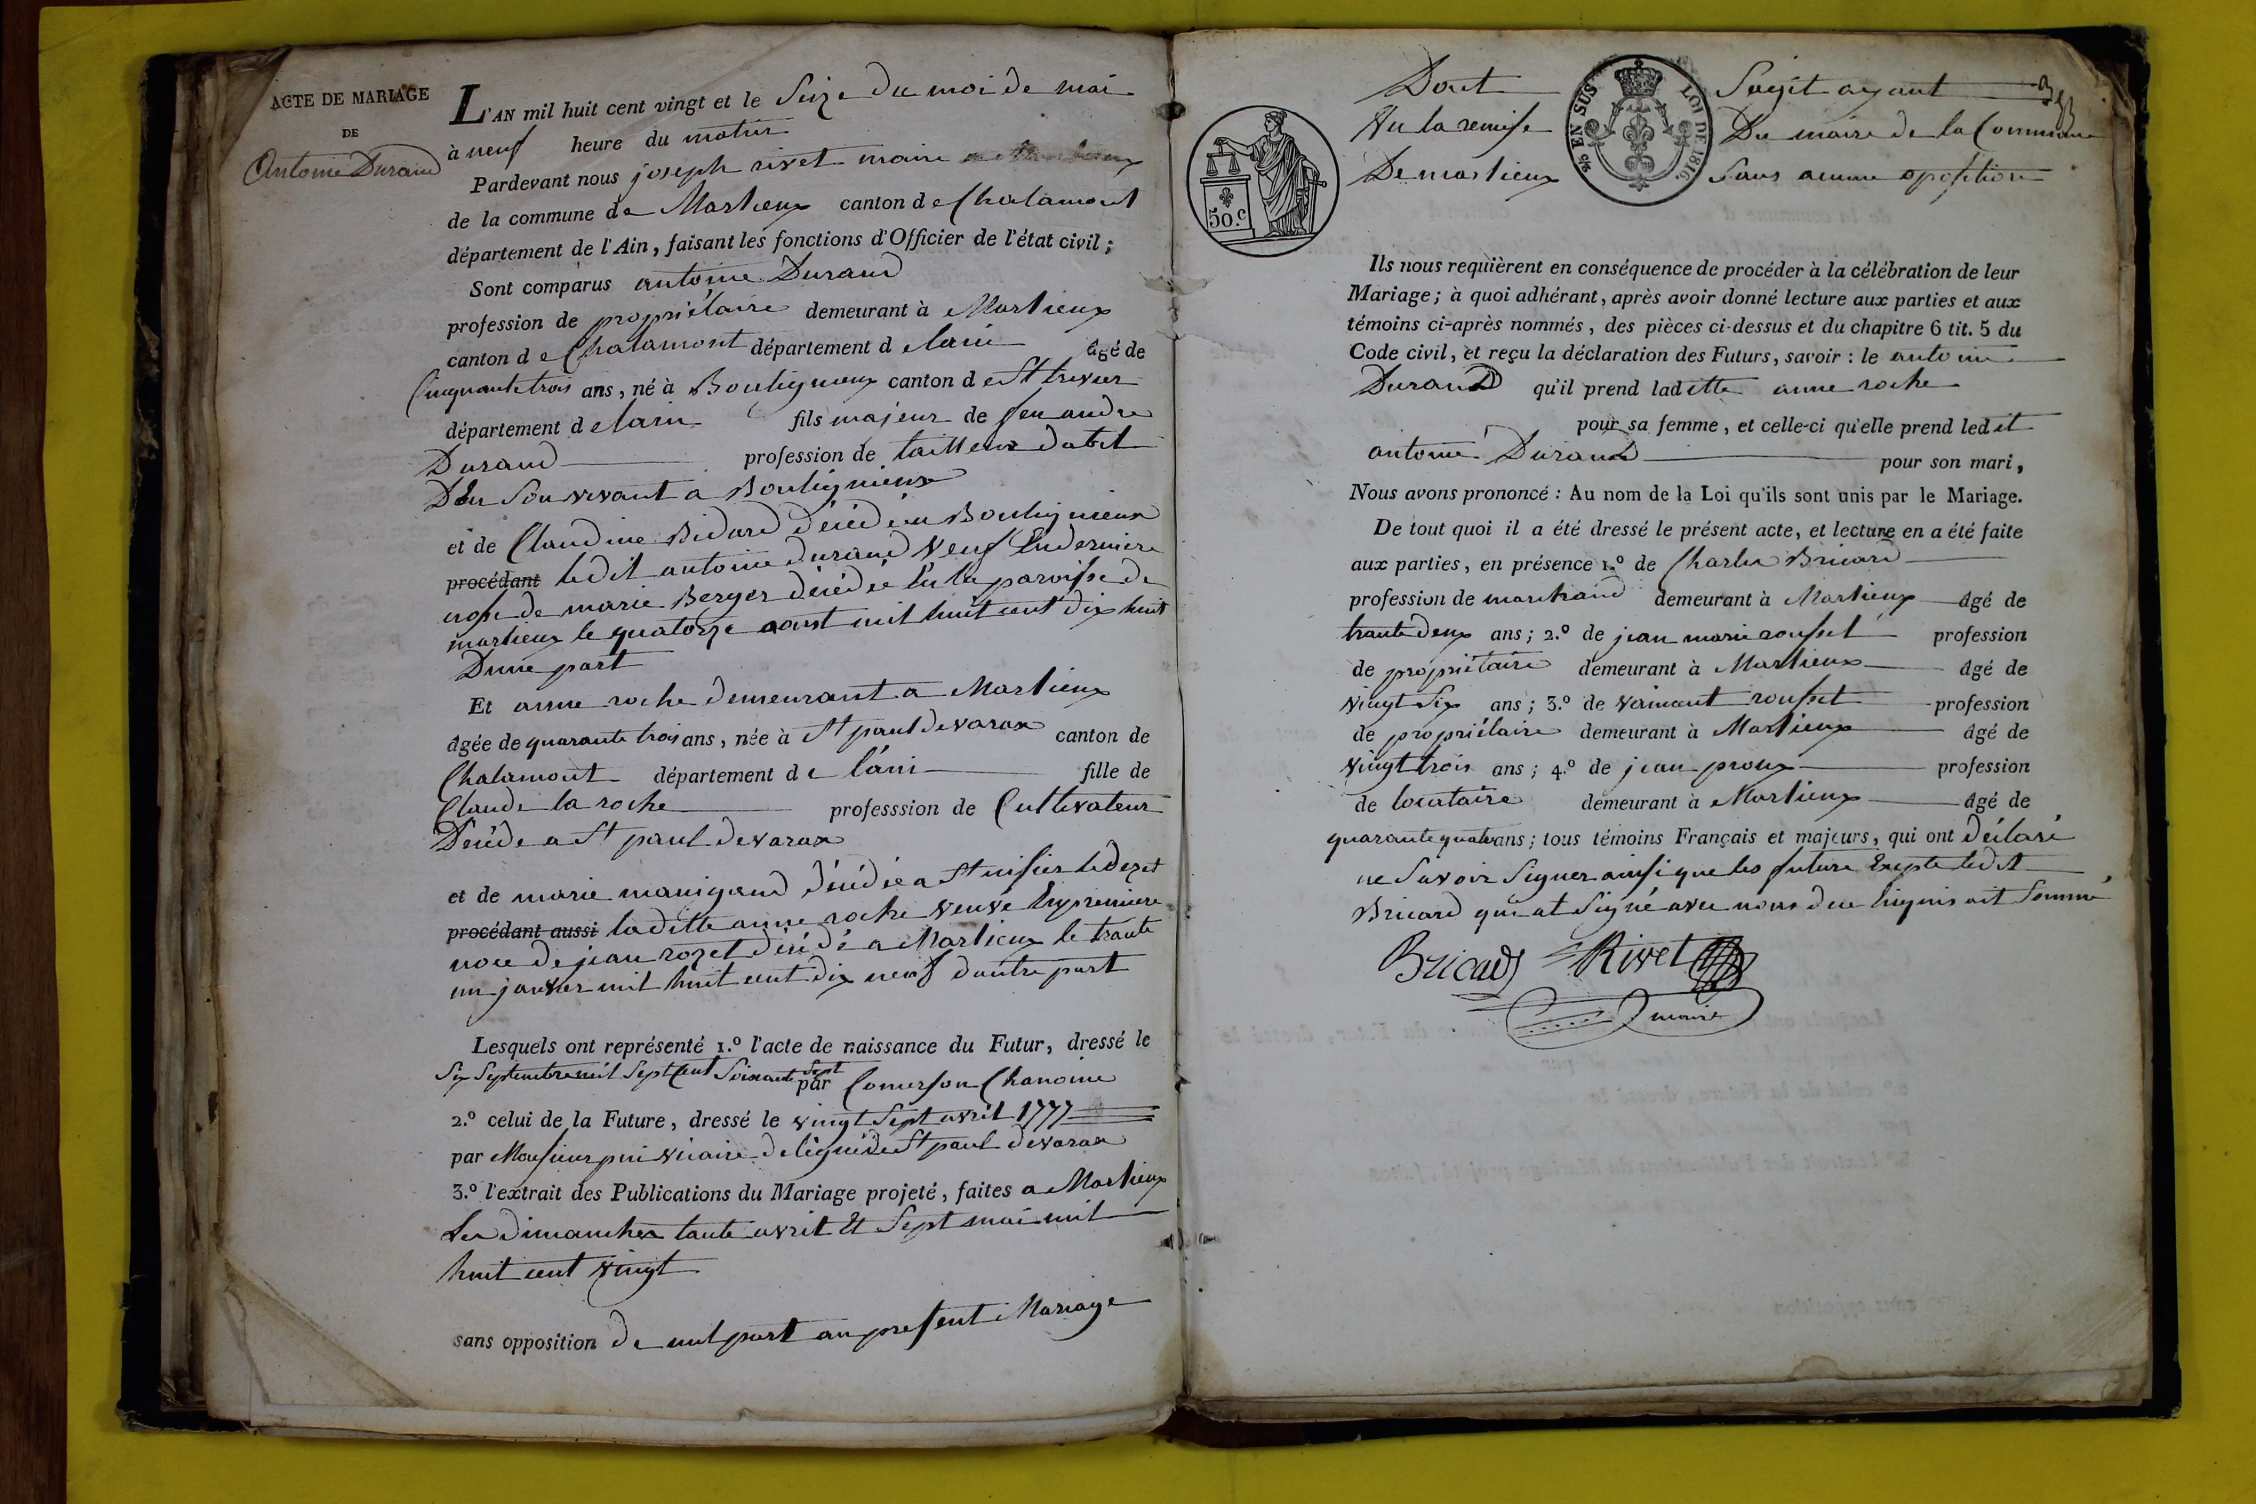 ACTE DE MARIAGE
DE
Antoine Durand
L'AN mil huit cent vingt et le Seize du moi de mai
à neuf heure du matin
Pardevant nous joseph rivet maire
de la commune de Marlieux canton de Chalamont
département de l'Ain, faisant les fonctions d'Officier de l'état civil;
Sont comparus antoine Durand
profession de propriétaire demeurant à Marlieux
canton de Chalamont département de lain âgé de
Cinquante trois ans, né à Bouligneux canton de St trivier
département de lain fils majeur de feu andre
Durand profession de tailleur dabit
De Son vivant a Bouligneux
et de Claudine Bidard décédé a Bouligneux
procédant ledit antoine durand veuf En derniere
nose de marie Berger décédée En la paroisse de
marlieux le quatorze aoust mil huit cent dix huit
Dune part
Et anne roche demeurant a Marlieux
âgée de quarante trois ans, née à St paul devarax canton de
Chalamont département de lain fille de
Claude la roche professsion de Cultivateur
Décédé a St paul devarax
et de marie manigand décédée a St nisier ledezet
procédant aussi laditte anne roche veuve En premiere
noce de jean rozet décédé a Marlieux le trante
un janvier mil huit cent dix neuf dautre part
Lesquels ont représenté 1.º l'acte de naissance du Futur, dressé le
Six Septembre mil Sept Cent Soixante Sept par Comerson Chanoine
2.º celui de la Future, dressé le vingt Sept avril 1777
par Monsieur vicaire St paul devarax
3.º l'extrait des Publications du Mariage projeté, faites a Marlieux
Les dimanches tante avril Et Sept mai mil
huit cent vingt
sans opposition de nul part au present Mariage
50.c
EN SUS LOI DE 1816.
Dont Sagit ayant
Vu la remise Du maire de la Commune
De marlieux Sans aucune oposition
Ils nous requièrent en conséquence de procéder à la célébration de leur
Mariage; à quoi adhérant, après avoir donné lecture aux parties et aux
témoins ci-après nommés, des pièces ci-dessus et du chapitre 6 tit. 5 du
Code civil, et reçu la déclaration des Futurs, savoir: le antoine
Durand qu'il prend laditte anne roche
pour sa femme, et celle-ci qu'elle prend ledit
antoine Durand pour son mari,
Nous avons prononcé: Au nom de la Loi qu'ils sont unis par le Mariage.
De tout quoi il a été dressé le présent acte, et lecture en a été faite
aux parties, en présence 1.º de Charles Bricard
profession de marchand demeurant à Marlieux âgé de
trante deux ans; 2.º de jean marie rousset profession
de propriétaire demeurant à Marlieux âgé de
vingt Six ans; 3.º de vaincent rousset profession
de propriélaire demeurant à Marlieux âgé de
vingt trois ans; 4.º de jean proux profession
de locataire demeurant à Marlieux âgé de
quarante quatre ans; tous témoins Français et majeurs, qui ont déclaré
ne Savoir Signer ainsi que les future Exepte ledit
Bricard qui at Signé avec nous
Bricard Rivet
maire